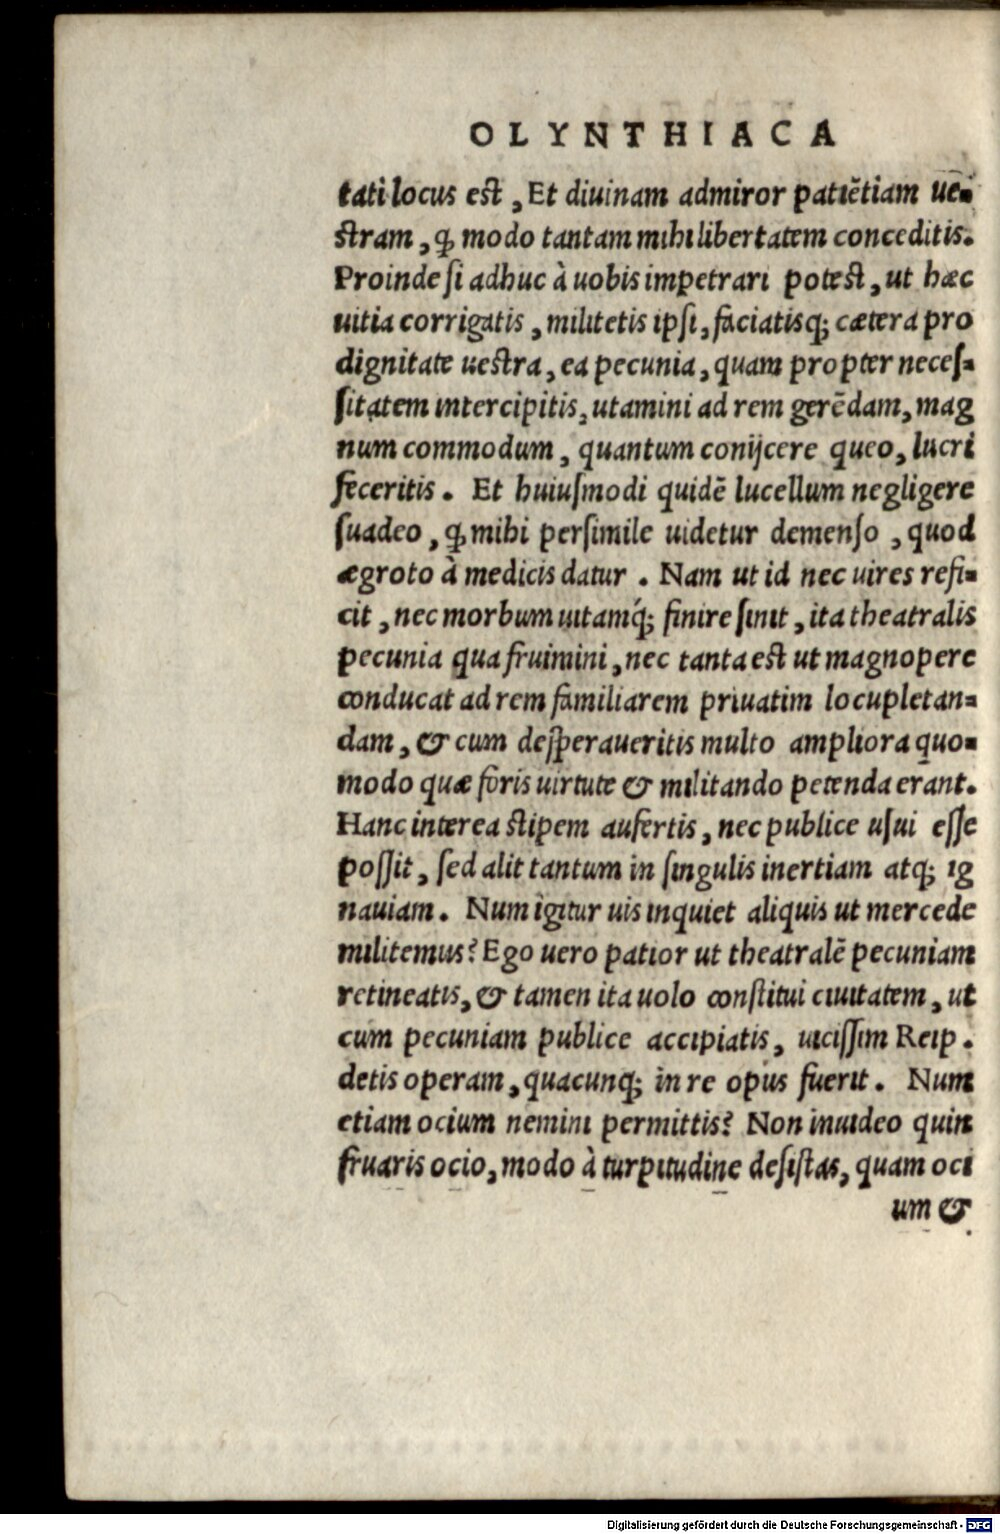 OLYNTHIACA
tati locus est, Et diuinam admiror patiẽtiam ue-
stram, ꝗ modo tantam mihi libertatem conceditis.
Proinde si adhuc à uobis impetrari potest, ut hæc
uitia corrigatis, militetis ipsi, faciatisq; cætera pro
dignitate uestra, ea pecunia, quam propter neces-
sitatem intercipitis, utamini ad rem gerẽdam, mag
num commodum, quantum conijcere queo, lucri
feceritis. Et huiusmodi quidẽ lucellum negligere
suadeo, ꝗ mihi persimile uidetur demenso, quod
ægroto à medicis datur. Nam ut id nec uires refi-
cit, nec morbum uitamq́; finire sinit, ita theatralis
pecunia qua fruimini, nec tanta est ut magnopere
conducat ad rem familiarem priuatim locupletan-
dam, & cum desperaueritis multo ampliora quo-
modo quæ foris uirtute & militando petenda erant.
Hanc interea stipem aufertis, nec publice usui esse
possit, sed alit tantum in singulis inertiam atq; ig
nauiam. Num igitur uis inquiet aliquis ut mercede
militemus? Ego uero patior ut theatralẽ pecuniam
retineatis, & tamen ita uolo constitui ciuitatem, ut
cum pecuniam publice accipiatis, uicissim Reip.
detis operam, quacunq; in re opus fuerit. Num
etiam ocium nemini permittis? Non inuideo quin
fruaris ocio, modo à turpitudine desistas, quam oci
um &
Digitalisierung gefördert durch die Deutsche Forschungsgemeinschaft - DFG